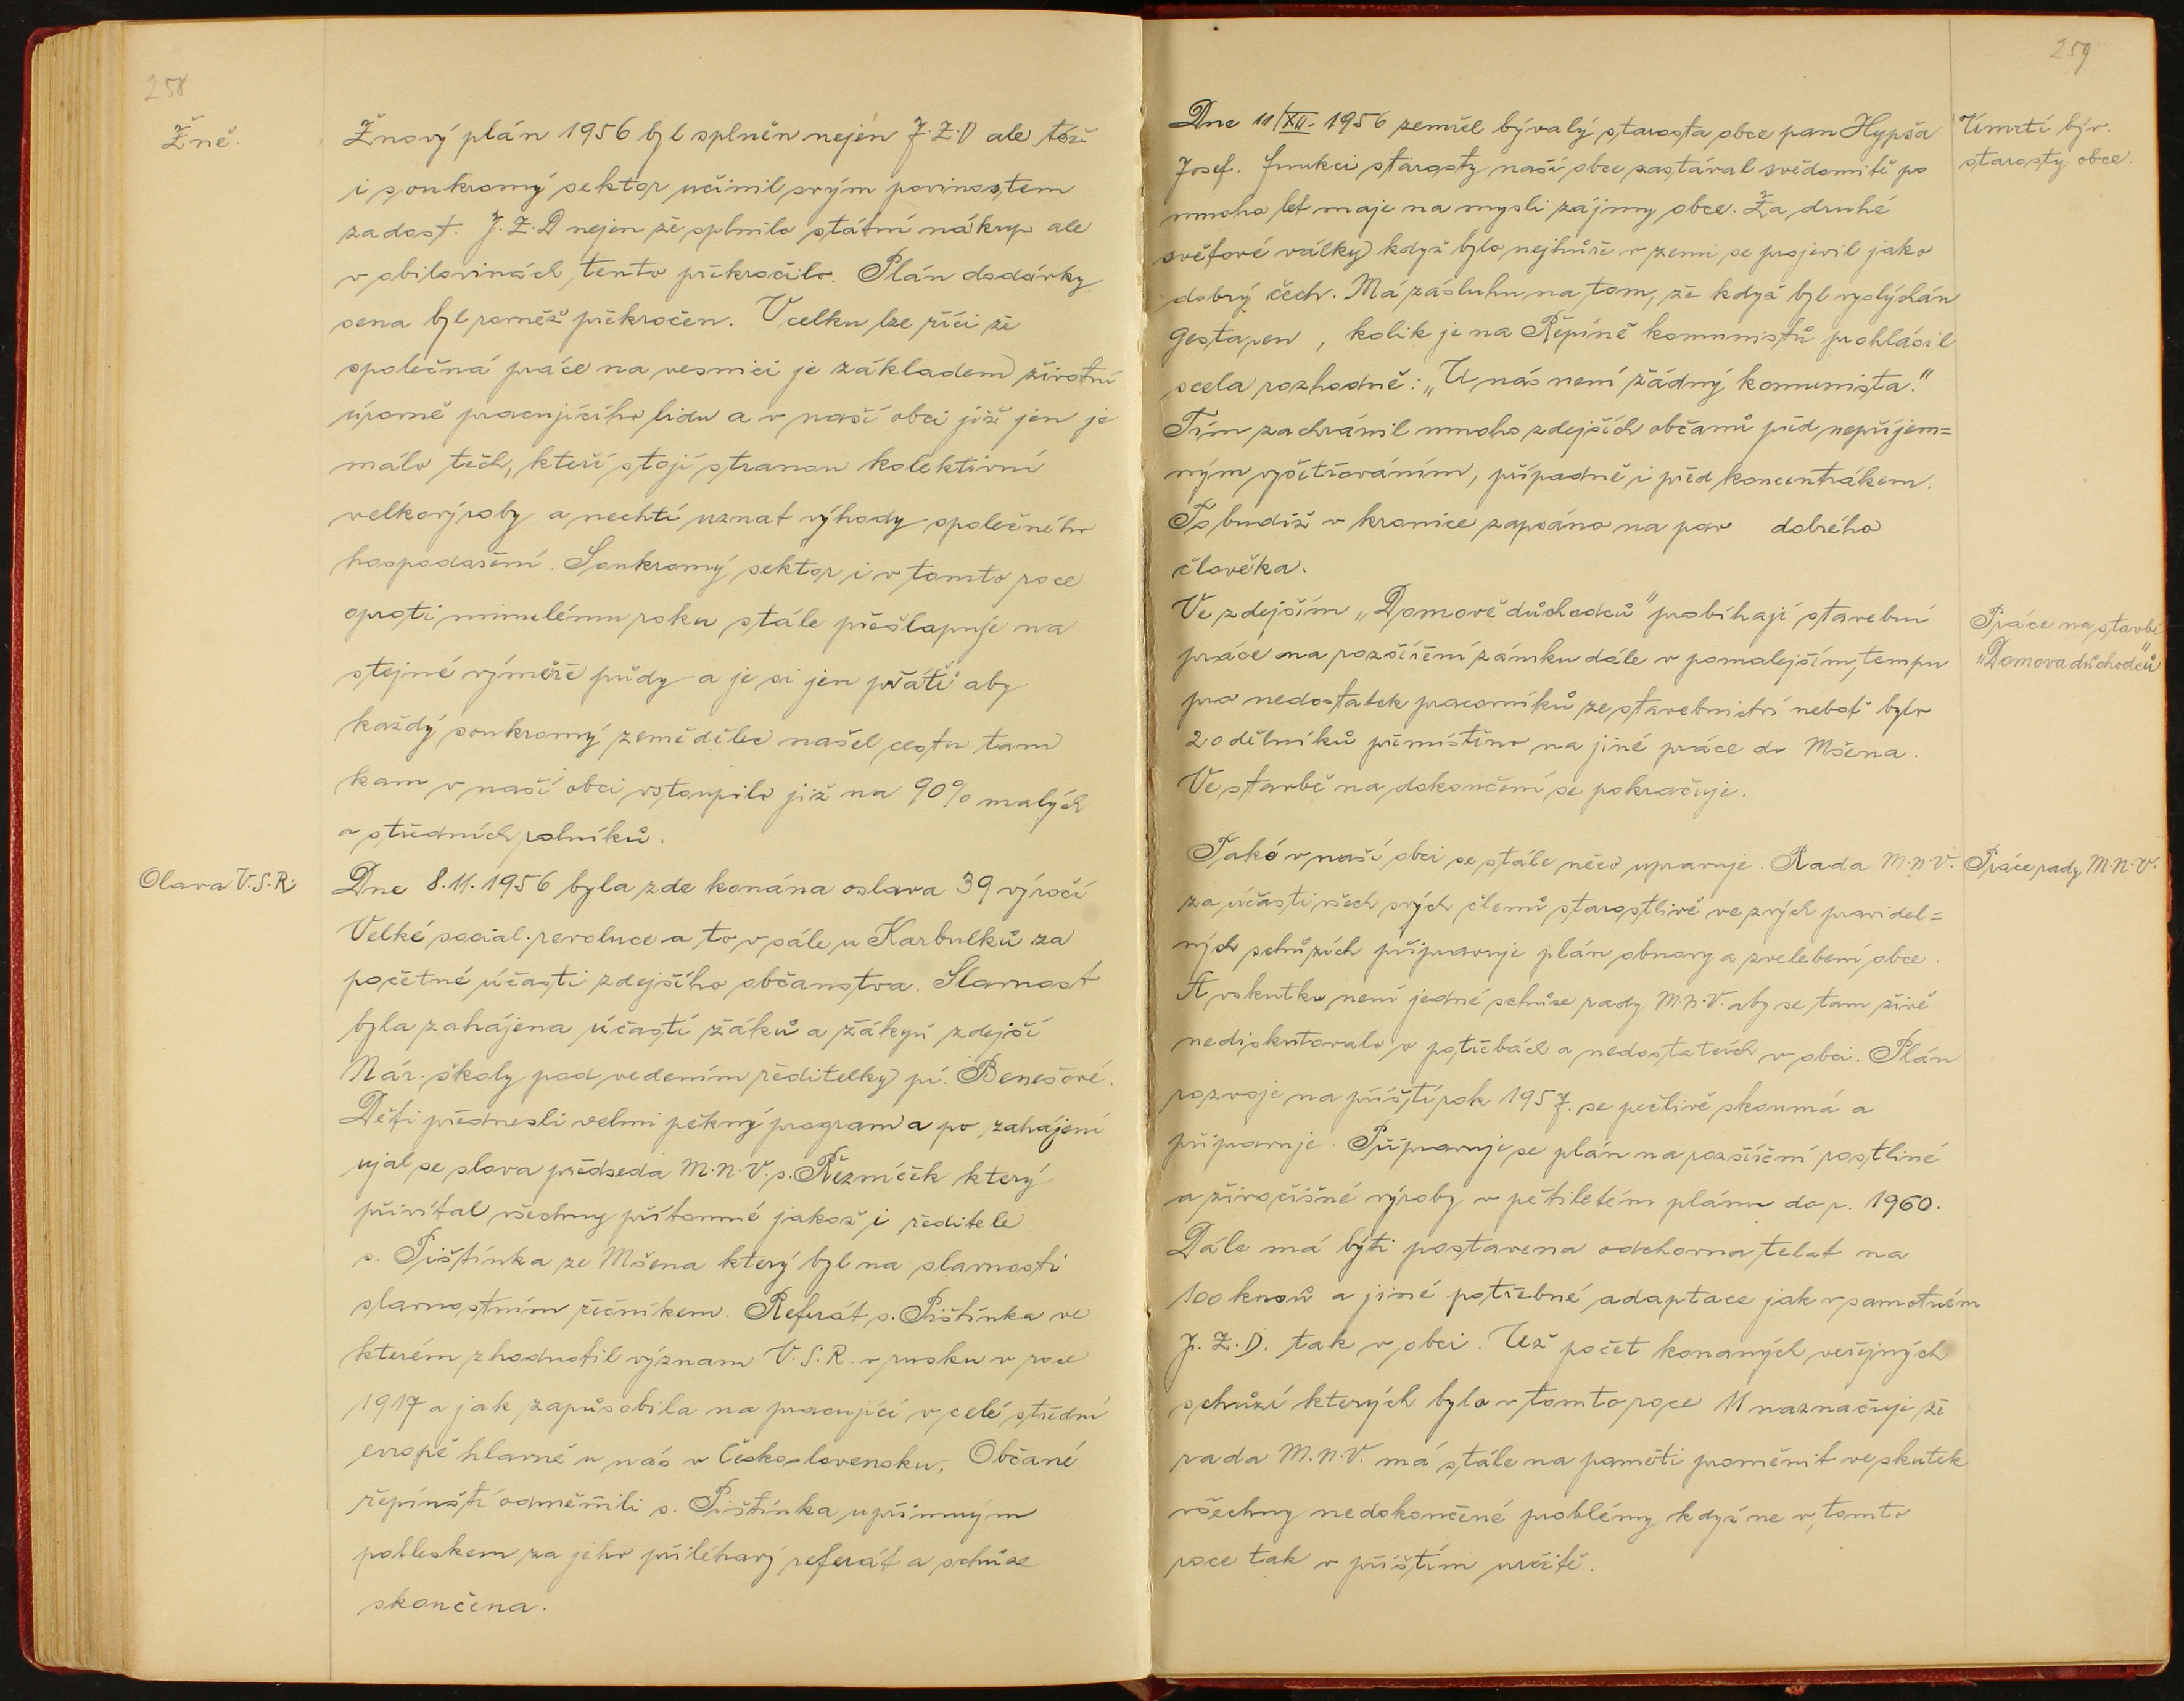 258
Žně.
Žnový plán 1956 byl splněn nejen J.Z.D ale též
i soukromý sektor učinil svým povinostem
zadost. J.Z.D nejen že splnilo státní nákup ale
v obilovinách, tento překročilo. Plán dodávky
sena byl rovněž překročen. V celku lze říci že
společná práce na vesnici je základem životní
úrovně pracujícího lidu a v naší obci již jen je
málo těch, kteří stojí stranou kolektivní
velkovýroby a nechtí uznat výhody společného
hospodaření. Soukromý sektor i v tomto roce
oproti minulému roku stále přešlapuje na
stejné výměře půdy a je si jen přáti aby
každý soukromý zemědělec našel cestu tam
kam v naší obci vstoupilo již na 90% malých
a středních rolníků.
Olava V.S.R.
Dne 8.11.1956 byla zde konána oslava 39 výročí
Velké social. revoluce a to v sále u Karbulků za
početné účasti zdejšího občanstva. Slavnost
byla zahájena účastí žáků a žákyň zdejší
Nár. školy pod vedením ředitelky pí. Benešové.
Děti přednesli velmi pěkný program a po zahájení
ujal se slova předseda M.N.V. s. Řezníček který
přivítal všechny přítomné jakož i ředitele
s. Pištínka ze Mšena který byl na slavnosti
slavnostním řečníkem. Referát s. Pištínka ve
kterém zhodnotil význam V.S.R. v rusku v roce
1917 a jak zapůsobila na pracující v celé střední
evropě hlavně u nás v Československu. Občané
řepínští odměnili s. Pištínka upřímným
potleskem za jeho přiléhavý referát a schůze
skončena.
259
Dne 11/XII. 1956 zemřel bývalý starosta obce pan Hypša
Josef. funkci starosty naší obce zastával svědomitě po
mnoho let maje na mysli zájmy obce. Za druhé
světové války když bylo nejhůře v zemi se projevil jako
dobrý čech. Má zásluhu na tom, že když byl vyslýchán
gestapem, kolik je na Řepíně komunistů prohlásil
scela rozhodně: „U nás není žádný komunista."
Tím zachránil mnoho zdejších občanů před nepříjem=
ným vyšetřováním, případně i před koncentrákem.
To budiž v kronice zapsáno na pav dobrého
člověka.
Úmrtí býv.
starosty obce.
Ve zdejším „Domově důchodců" probíhají stavební
práce na rozšíření zámku dále v pomalejším tempu
pro nedostatek pracovníků ze stavebnictví neboť bylo
20 dělníků přemístěno na jiné práce do Mšena.
Ve stavbě na dokončení se pokračuje.
Práce na stavbě
„Domova důchodců"
Také v naší obci se stále něco upravuje. Rada M.N.V.
za účasti všech svých členů starostlivě ve svých pravidel=
ných schůzích připravuje plán obnovy a zvelebení obce.
A vskutku není jedné schůze rady M.N.V. aby se tam živě
nediskutovalo o potřebách a nedostatcích v obci. Plán
rozvoje na příští rok 1957. se pečlivě skoumá a
připravuje. Připravuje se plán na rozšíření rostliné
a živočišné výroby v pětiletém plánu do r. 1960.
Dále má býti postavena odchovna telat na
100 kusů a jiné potřebné adaptace jak v samotném
J.Z.D. tak v obci. Už počet konaných veřejných
schůzí kterých bylo v tomto roce 11 naznačuje že
rada M.N.V. má stále na paměti proměnit ve skutek
všechny nedokončené problémy když ne v tomto
roce tak v příštím určitě.
Práce rady M.N.V.